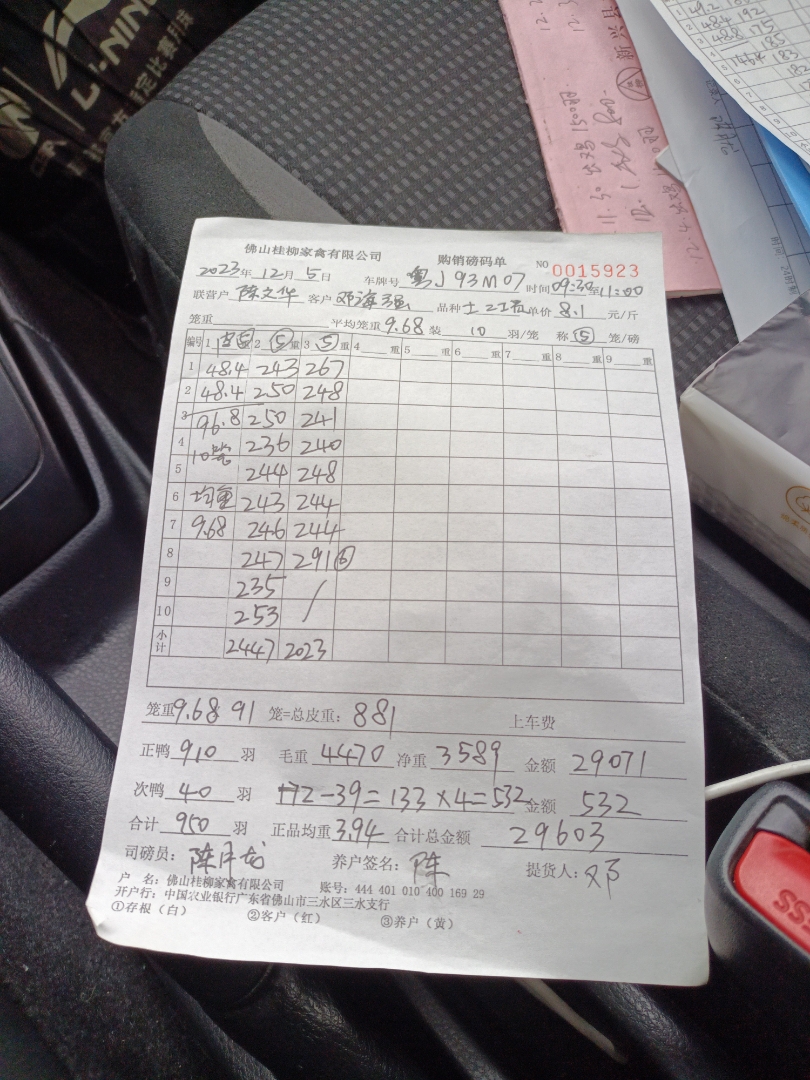 LI-NING
佛山桂柳家禽有限公司 购销磅码单 NO 0015923
2023年12月5日 车牌号 粤J 93M07 时间 09:30至11:00
联营户 陈文华 客户 邓海强 品种 土 单价 8.1 元/斤
笼重 平均笼重 9.68 装 10 羽/笼 称 ⑤ 笼/磅
编号 1 皮⑤重 2 ⑤重 3 ⑤重 4 重 5 重 6 重 7 重 8 重 9 重
1 48.4 243 267
2 48.4 250 248
3 96.8 250 241
4 10笼 236 240
5 244 248
6 均重 243 244
7 9.68 246 244
8 247 291⑥
9 235 /
10 253
小计 2447 2023
笼重 9.68 91 笼=总皮重: 881 上车费
正鸭 910 羽 毛重 4470 净重 3589 金额 29071
次鸭 40 羽 172-39=133×4=532 金额 532
合计 950 羽 正品均重 3.94 合计总金额 29603
司磅员: 陈 养户签名: 陈 提货人: 邓
户 名: 佛山桂柳家禽有限公司 账号: 444 401 010 400 169 29
开户行: 中国农业银行广东省佛山市三水区三水支行
①存根（白） ②客户（红） ③养户（黄）